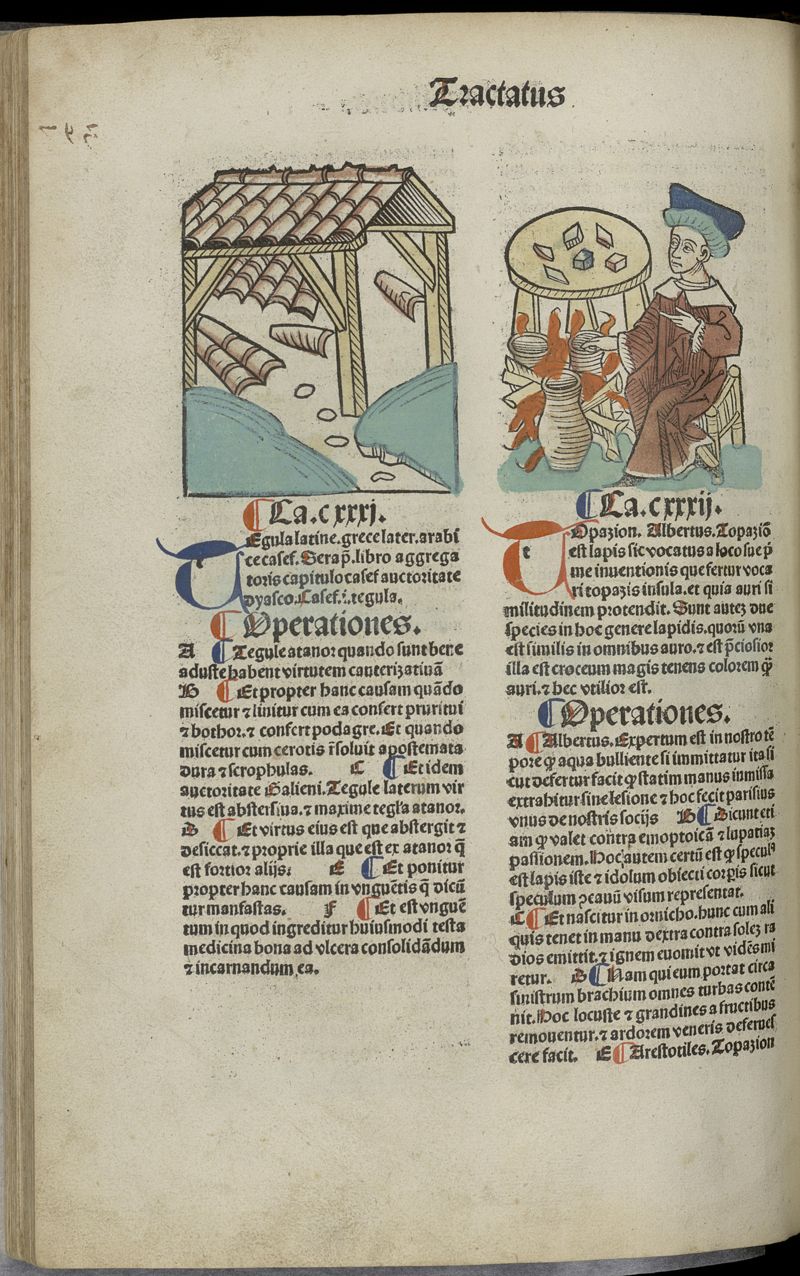 Tractatus
¶ Ca. cxxxj.
TEgula latine. grece later. arabi
ce casef. Serap̄. libro aggrega
toris capitulo casef auctoritate
dyasco. Casef. i. tegula.
¶ Operationes.
A ¶ Tegule atanor quando sunt bene
aduste habent virtutem cauterizatiuā
B ¶ Et propter hanc causam quādo
miscetur ⁊ linitur cum ea confert pruritui
⁊ bothor. ⁊ confert podagre. Et quando
miscetur cum cerotis r̄soluit apostemata
dura ⁊ scrophulas. C ¶ Et idem
auctoritate Galieni. Tegule laterum vir
tus est abstersiua. ⁊ maxime tegl'a atanor.
D ¶ Et virtus eius est que abstergit ⁊
desiccat. ⁊ proprie illa que est ex atanor q̄
est fortior alijs. E ¶ Et ponitur
propter hanc causam in vnguētis q̄ dicū
tur manfastas. F ¶ Et est vnguē
tum in quod ingreditur huiusmodi testa
medicina bona ad vlcera consolidādum
⁊ incarnandum ea.
¶ Ca. cxxxij.
TOpazion. Albertus. Topaziō
est lapis sic vocatus a loco sue p̄
me inuentionis que fertur voca
ri topazis insula. et quia auri si
militudinem protendit. Sunt autez due
species in hoc genere lapidis. quorū vna
est similis in omnibus auro. ⁊ est p̄ciosior
illa est croceum magis tenens colorem ꝙ̄
auri. ⁊ hec vtilior est.
¶ Operationes.
A ¶ Albertus. Expertum est in nostro tē
pore ꝙ aqua bulliente si immittatur ita si
cut defertur facit ꝙ statim manus inmissa
extrahitur sine lesione ⁊ hoc fecit parisius
vnus de nostris socijs B ¶ Dicunt eti
am ꝙ valet contra emoptoicā ⁊ lupatiaz
passionem. Hoc autem certū est ꝙ specul'
est lapis iste ⁊ idolum obiecti corp̄is sicut
speculum ꝯcauū visum representat.
C ¶ Et nascitur in ornicho. hunc cum ali
quis tenet in manu dextra contra solez ra
dios emittit. ⁊ ignem euomit vt vidēs mi
retur. D ¶ Nam qui eum portat circa
sinistrum brachium omnes turbas contē
nit. Hoc locuste ⁊ grandines a fructibus
remouentur. ⁊ ardorem veneris deferues
cere facit. E ¶ Arestotiles. Topazion